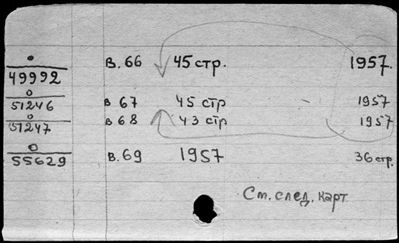 о
49992 в.66 45 стр. 1957.
о
51246 в 67 45 стр 1957
о
51247 в 68 43 стр 1957
о
55629 в.69 1957 36 стр.
См. след. карт